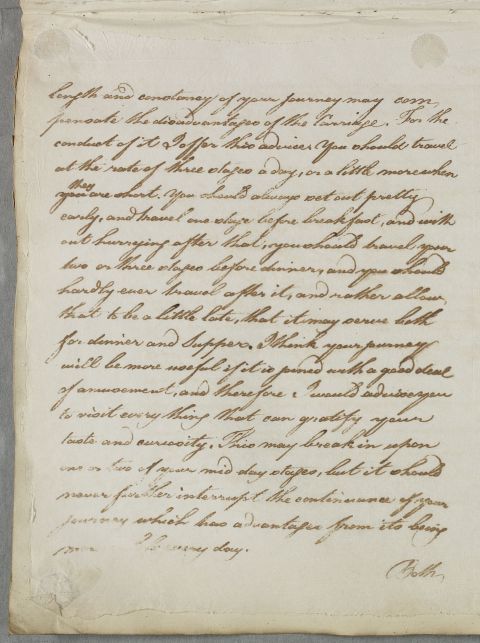 length and constancy of your Journey may com
pensate the disadvantages of the Carriage. For the
conduct of it I offer this advice. You should travel
at the rate of three stages a day, or a little more when
they
you are short. You should always set out pretty
early, and travel one stage before breakfast, and with
out hurrying after that, you should travel your
two or three stages before dinner, and you should
hardly ever travel after it, and rather allow
that to be a little late, that it may serve both
for dinner and Supper. I think your journey
will be more useful if it is joined with a good deal
of amusement, and therefore I would advise you
to visit every thing that can gratify your
taste and curiosity. This may break in upon
one or two of your mid day stages, but it should
never further interrupt the continuance of your
Journey which has advantages from its being
every day.
Both